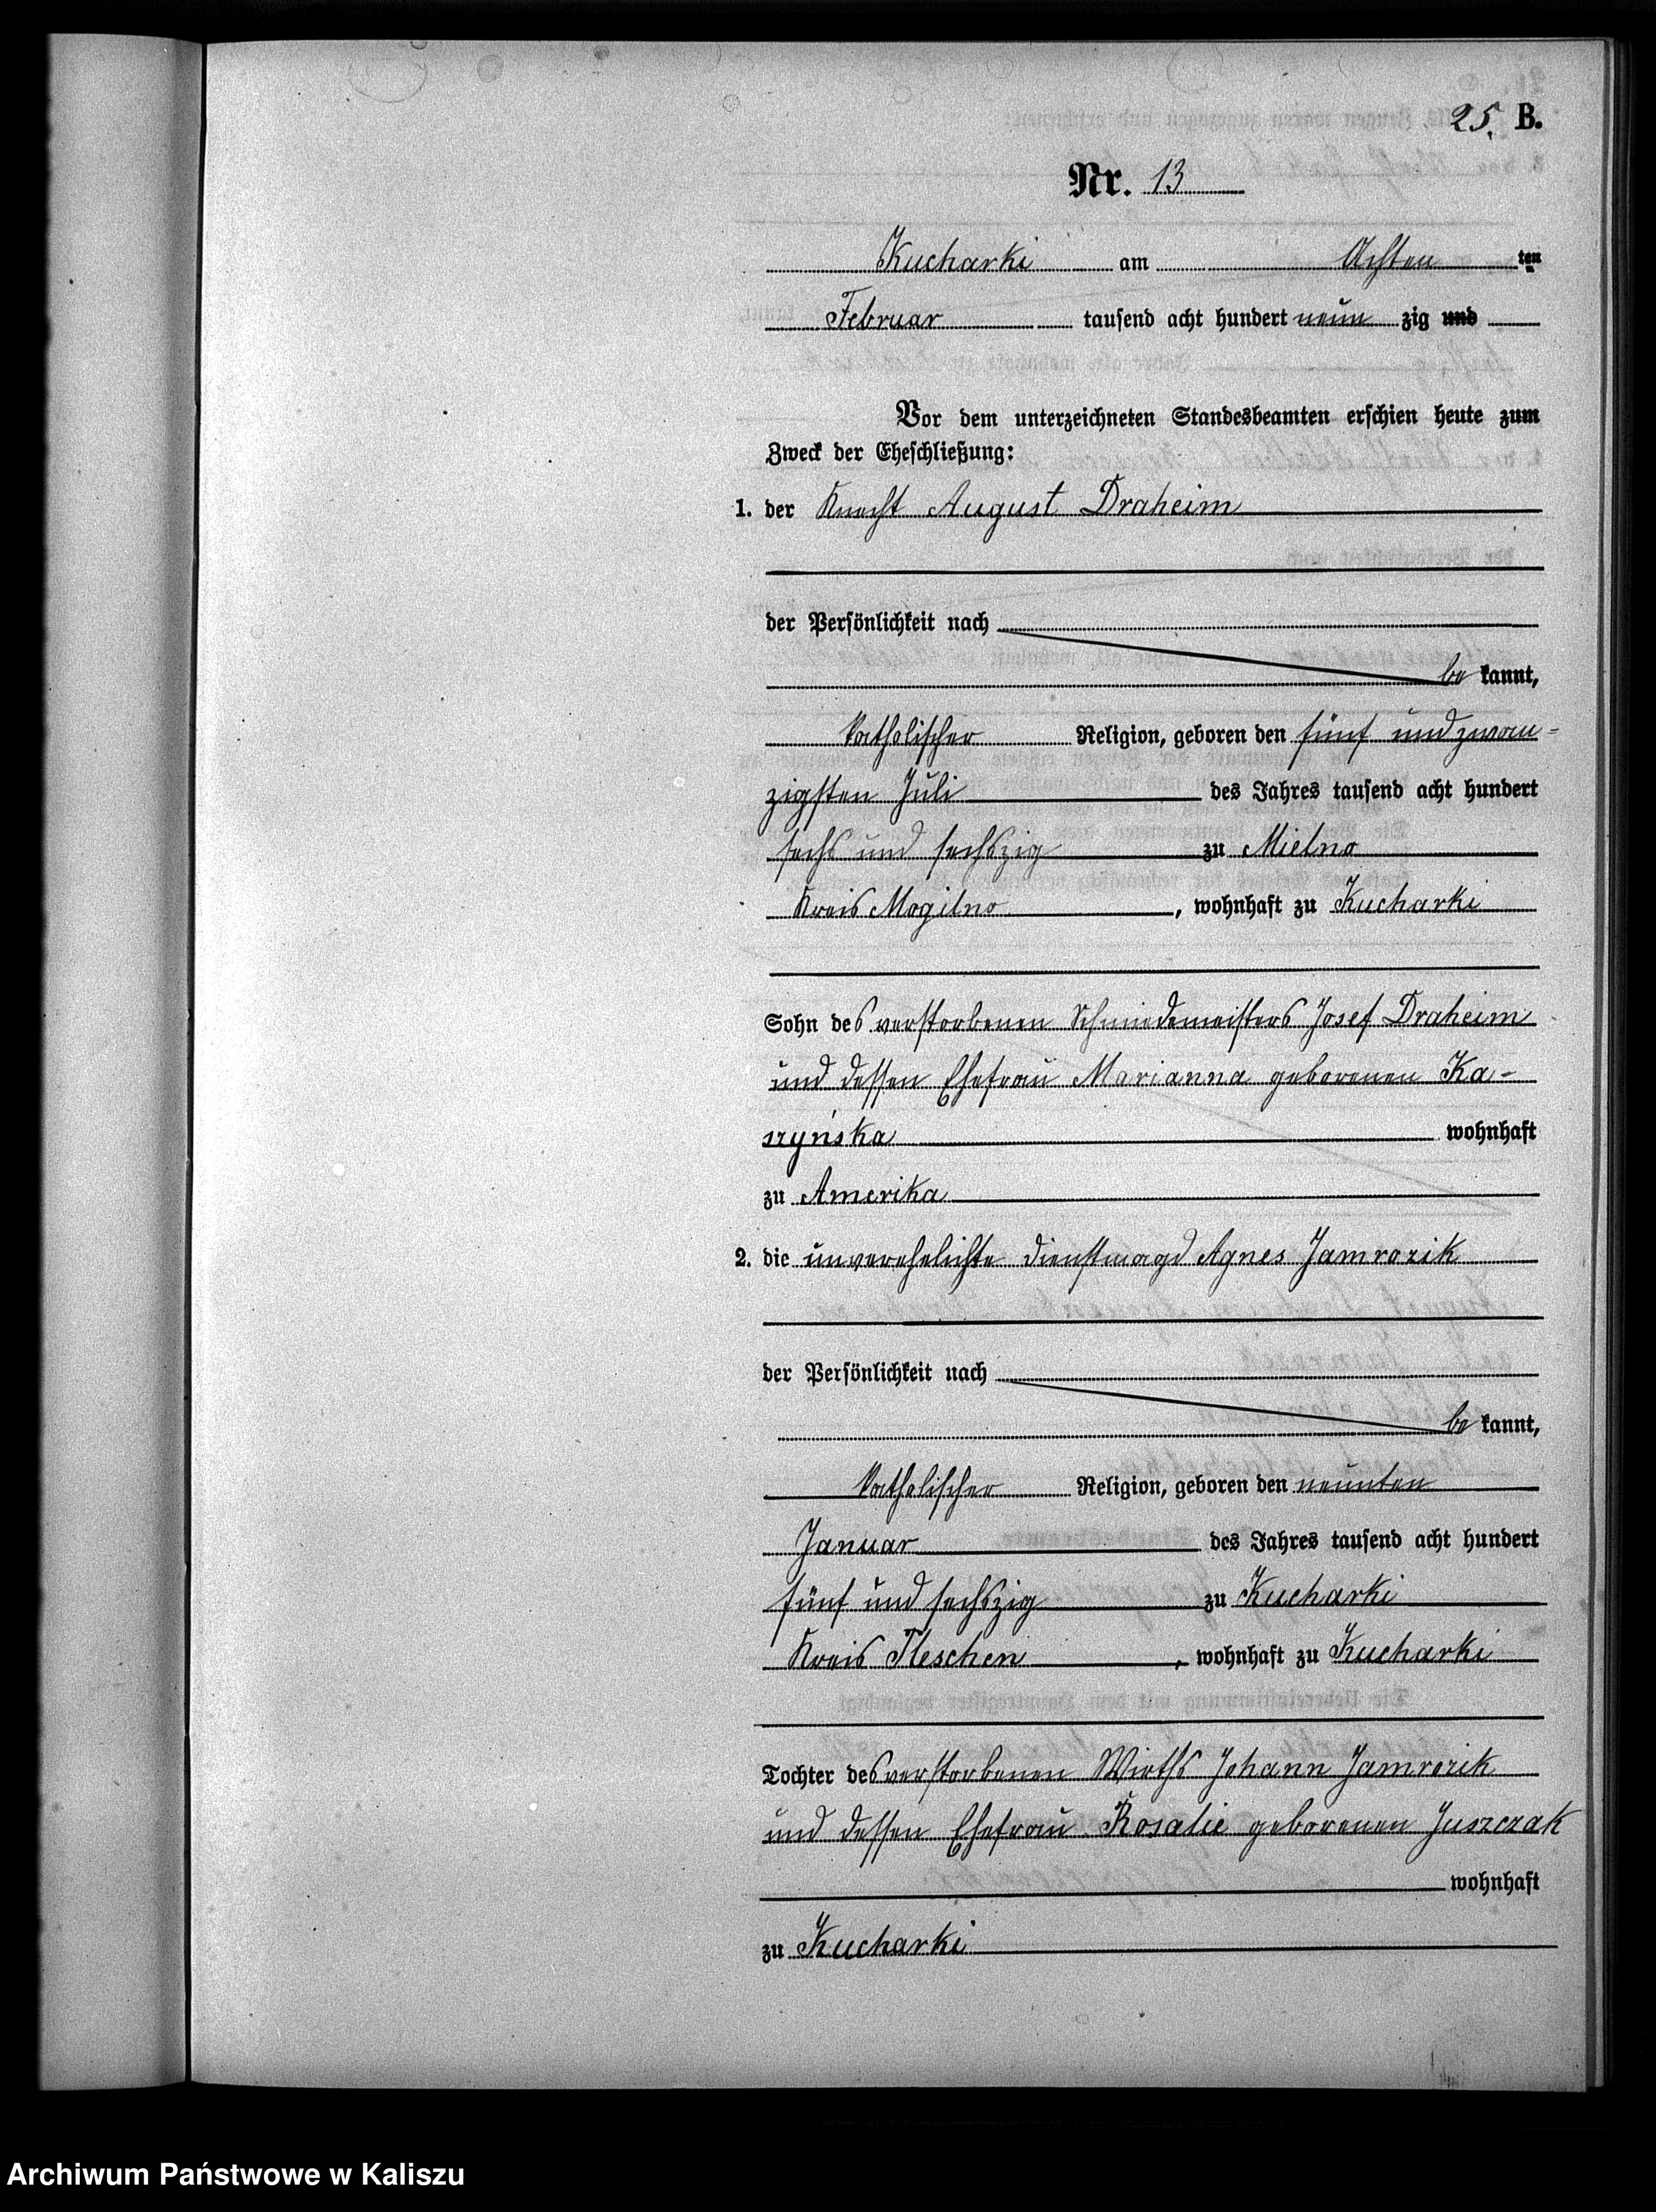 25. B.
Nr. 13
Kucharki am Achten ten
Februar tausend acht hundert neun zig und
Vor dem unterzeichneten Standesbeamten erschien heute zum
Zweck der Eheschließung:
1. der Knecht August Draheim
der Persönlichkeit nach
be kannt,
katholischer Religion, geboren den fünf und zwan-
zigsten Juli des Jahres tausend acht hundert
sechs und sechszig zu Mielno
Kreis Mogilno, wohnhaft zu Kucharki
Sohn des verstorbenen Schmiedemeisters Josef Draheim
und dessen Ehefrau Marianna geborenen Ka-
szyńska wohnhaft
zu Amerika
2. die unverehelichte Dienstmagd Agnes Jamrozik
der Persönlichkeit nach
be kannt,
katholischer Religion, geboren den neunten
Januar des Jahres tausend acht hundert
fünf und sechszig zu Kucharki
Kreis Pleschen, wohnhaft zu Kucharki
Tochter des verstorbenen Wirths Johann Jamrozik
und dessen Ehefrau Rosalie geborenen Juszczak
wohnhaft
zu Kucharki
Archiwum Państwowe w Kaliszu